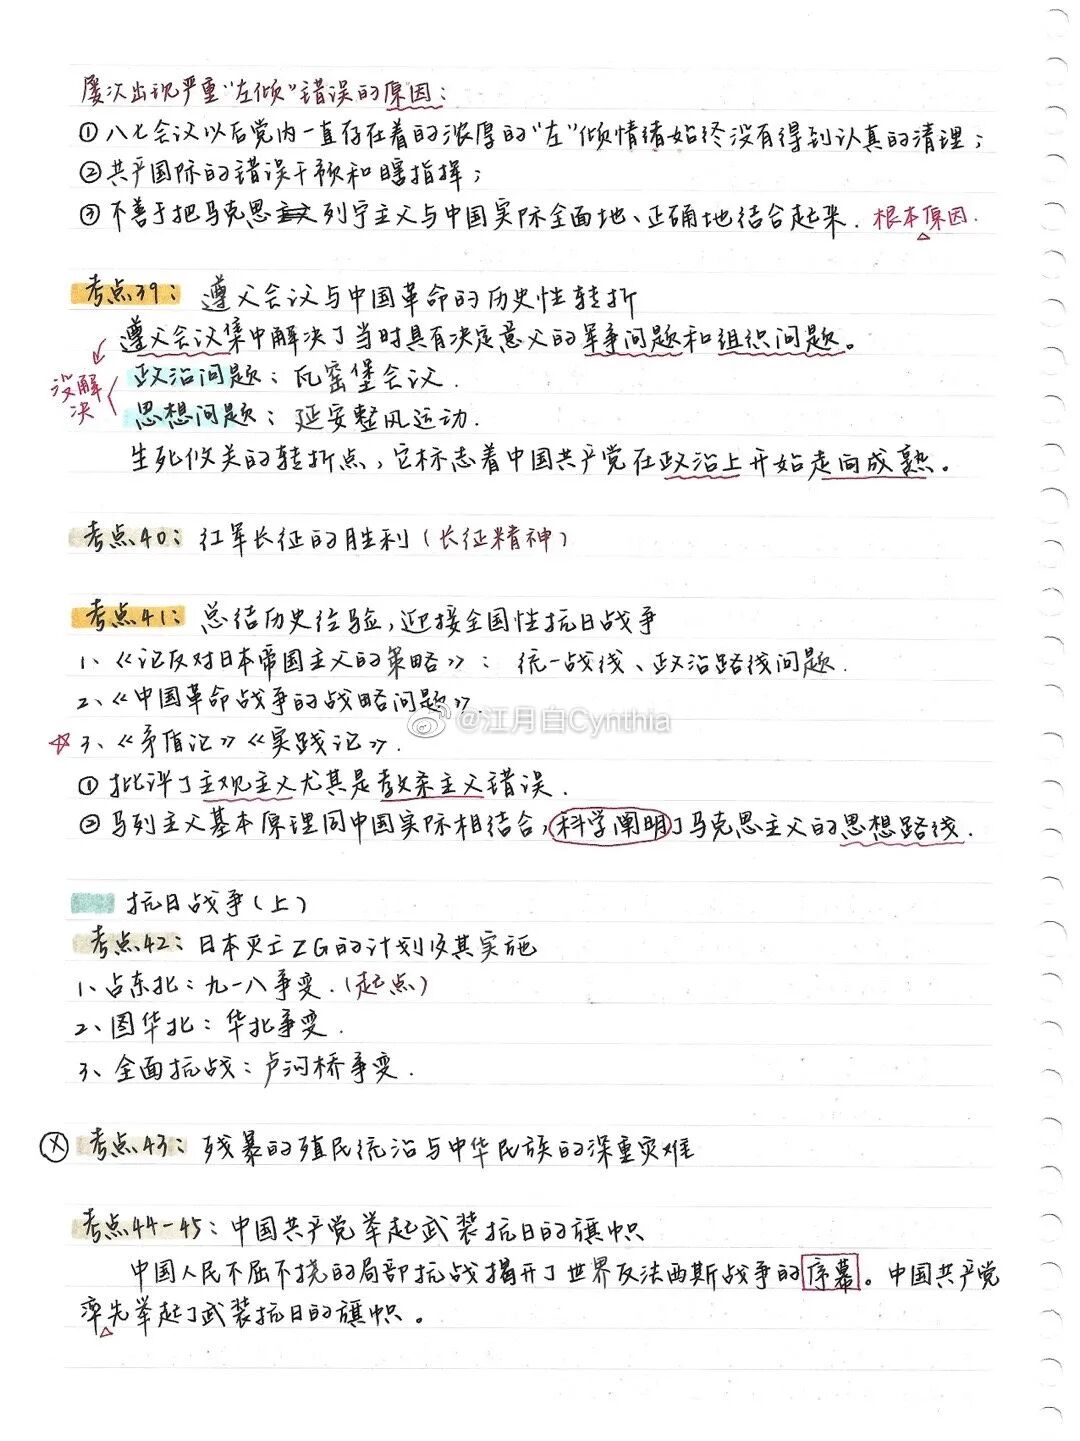 屡次出现严重“左倾”错误的原因：
①八七会议以后党内一直存在着的浓厚的“左”倾情绪始终没有得到认真的清理；
②共产国际的错误干预和瞎指挥；
③不善于把马克思主义列宁主义与中国实际全面地、正确地结合起来. 根本原因.
考点39：遵义会议与中国革命的历史性转折
遵义会议集中解决了当时具有决定意义的军事问题和组织问题。
没解决
政治问题：瓦窑堡会议.
思想问题：延安整风运动.
生死攸关的转折点，它标志着中国共产党在政治上开始走向成熟。
考点40：红军长征的胜利（长征精神）
考点41：总结历史经验，迎接全国性抗日战争
1、《论反对日本帝国主义的策略》：统一战线、政治路线问题.
2、《中国革命战争的战略问题》.
@江月白Cynthia
☆3、《矛盾论》《实践论》.
①批评了主观主义尤其是教条主义错误.
②马列主义基本原理同中国实际相结合，科学阐明了马克思主义的思想路线.
抗日战争（上）
考点42：日本灭亡ZG的计划及其实施
1、占东北：九一八事变.（起点）
2、图华北：华北事变.
3、全面抗战：卢沟桥事变.
ⓧ考点43：残暴的殖民统治与中华民族的深重灾难
考点44-45：中国共产党举起武装抗日的旗帜
中国人民不屈不挠的局部抗战揭开了世界反法西斯战争的序幕。中国共产党
率先举起了武装抗日的旗帜。